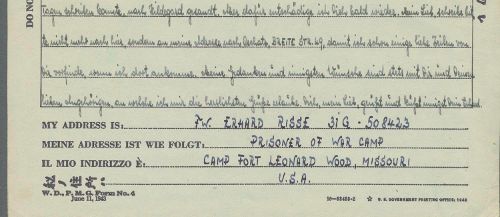 DO NO
Tagen schreiben konnte, nach Hildegard gesandt. Aber dafür entschädige ich Dich bald wieder. Mein Lieb, schreibe bit
te nicht mehr nach hier, sondern an meine Adresse nach BREITE STR. 49, damit ich schon einige liebe Zeilen von
Dir vorfinde, wenn ich dort ankomme. Meine Gedanken und innigsten Wünsche sind stets mit Dir und Deinen
lieben Angehörigen, an welche ich mir die herzlichsten Grüße erlaube. Dich, mein Lieb, grüßt und küßt innigst Dein Erhard
MY ADDRESS IS: FW. ERHARD RISSE 31G - 508423
MEINE ADRESSE IST WIE FOLGT: PRISONER OF WAR CAMP
IL MIO INDIRIZZO È: CAMP FORT LEONARD WOOD, MISSOURI
私ノ住所: U.S.A.
W. D., P. M. G. Form No. 4
June 11, 1943
U. S. GOVERNMENT PRINTING OFFICE: 1943